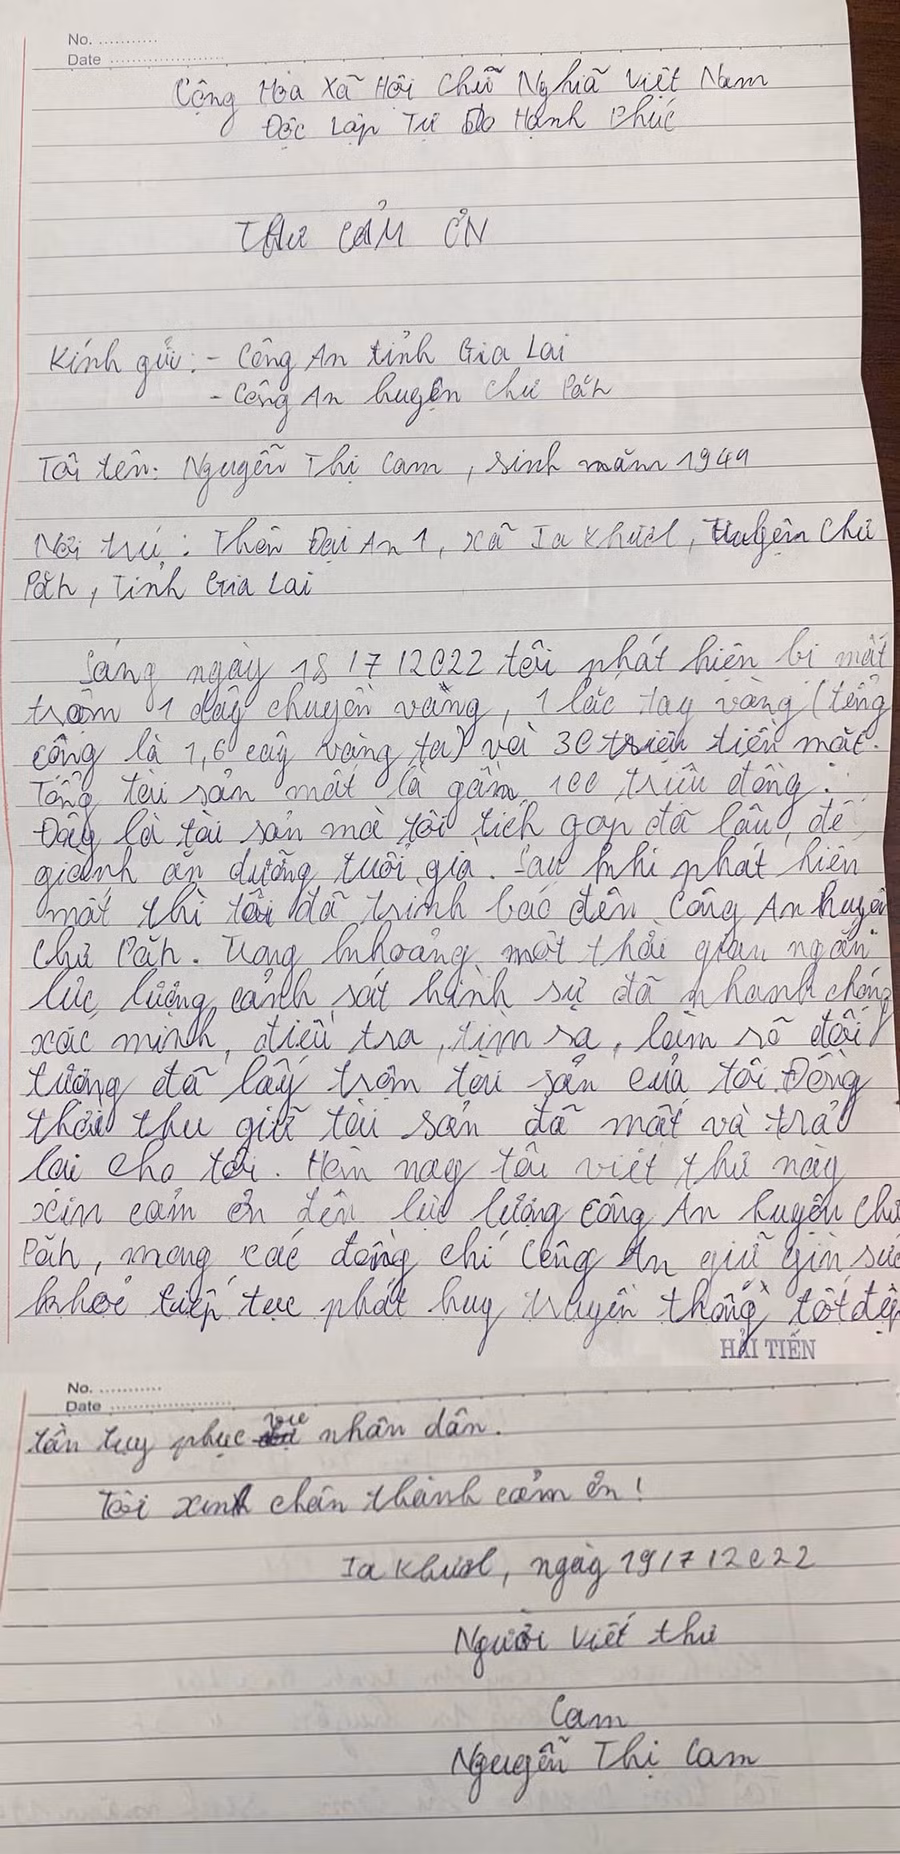 No. ...........
Date .....................
Cộng Hòa Xã Hội Chủ Nghĩa Việt Nam
Độc Lập Tự Do Hạnh Phúc
THƯ CẢM ƠN
Kính gửi: - Công An tỉnh Gia Lai
- Công An huyện Chư Păh
Tôi tên: Nguyễn Thị Cam, sinh năm 1949
Nơi trú: Thôn Đại An 1, xã Ia Khươl, Huyện Chư
Păh, Tỉnh Gia Lai
Sáng ngày 18/7/2022 tôi phát hiện bị mất
trộm 1 dây chuyền vàng, 1 lắc tay vàng (tổng
cộng là 1,6 cây vàng ta) và 30 triệu tiền mặt.
Tổng tài sản mất là gần 100 triệu đồng.
Đây là tài sản mà tôi tích góp đã lâu, để
giành ăn dưỡng tuổi già. Sau khi phát hiện
mất thì tôi đã trình báo đến Công An huyện
Chư Păh. Trong khoảng một thời gian ngắn
lực lượng cảnh sát hình sự đã nhanh chóng
xác minh, điều tra, tìm ra, làm rõ đối
tượng đã lấy trộm tài sản của tôi. Đồng
thời thu giữ tài sản đã mất và trả
lại cho tôi. Hôm nay tôi viết thư này
xin cảm ơn đến lực lượng Công An huyện Chư
Păh, mong các đồng chí Công An giữ gìn sức
khoẻ tiếp tục phát huy truyền thống tốt đẹp
HẢI TIẾN
No. ...........
Date .....................
tận tụy phục vụ nhân dân.
Tôi xinh chân thành cảm ơn!
Ia Khươl, ngày 19/7/2022
Người viết thư
Cam
Nguyễn Thị Cam